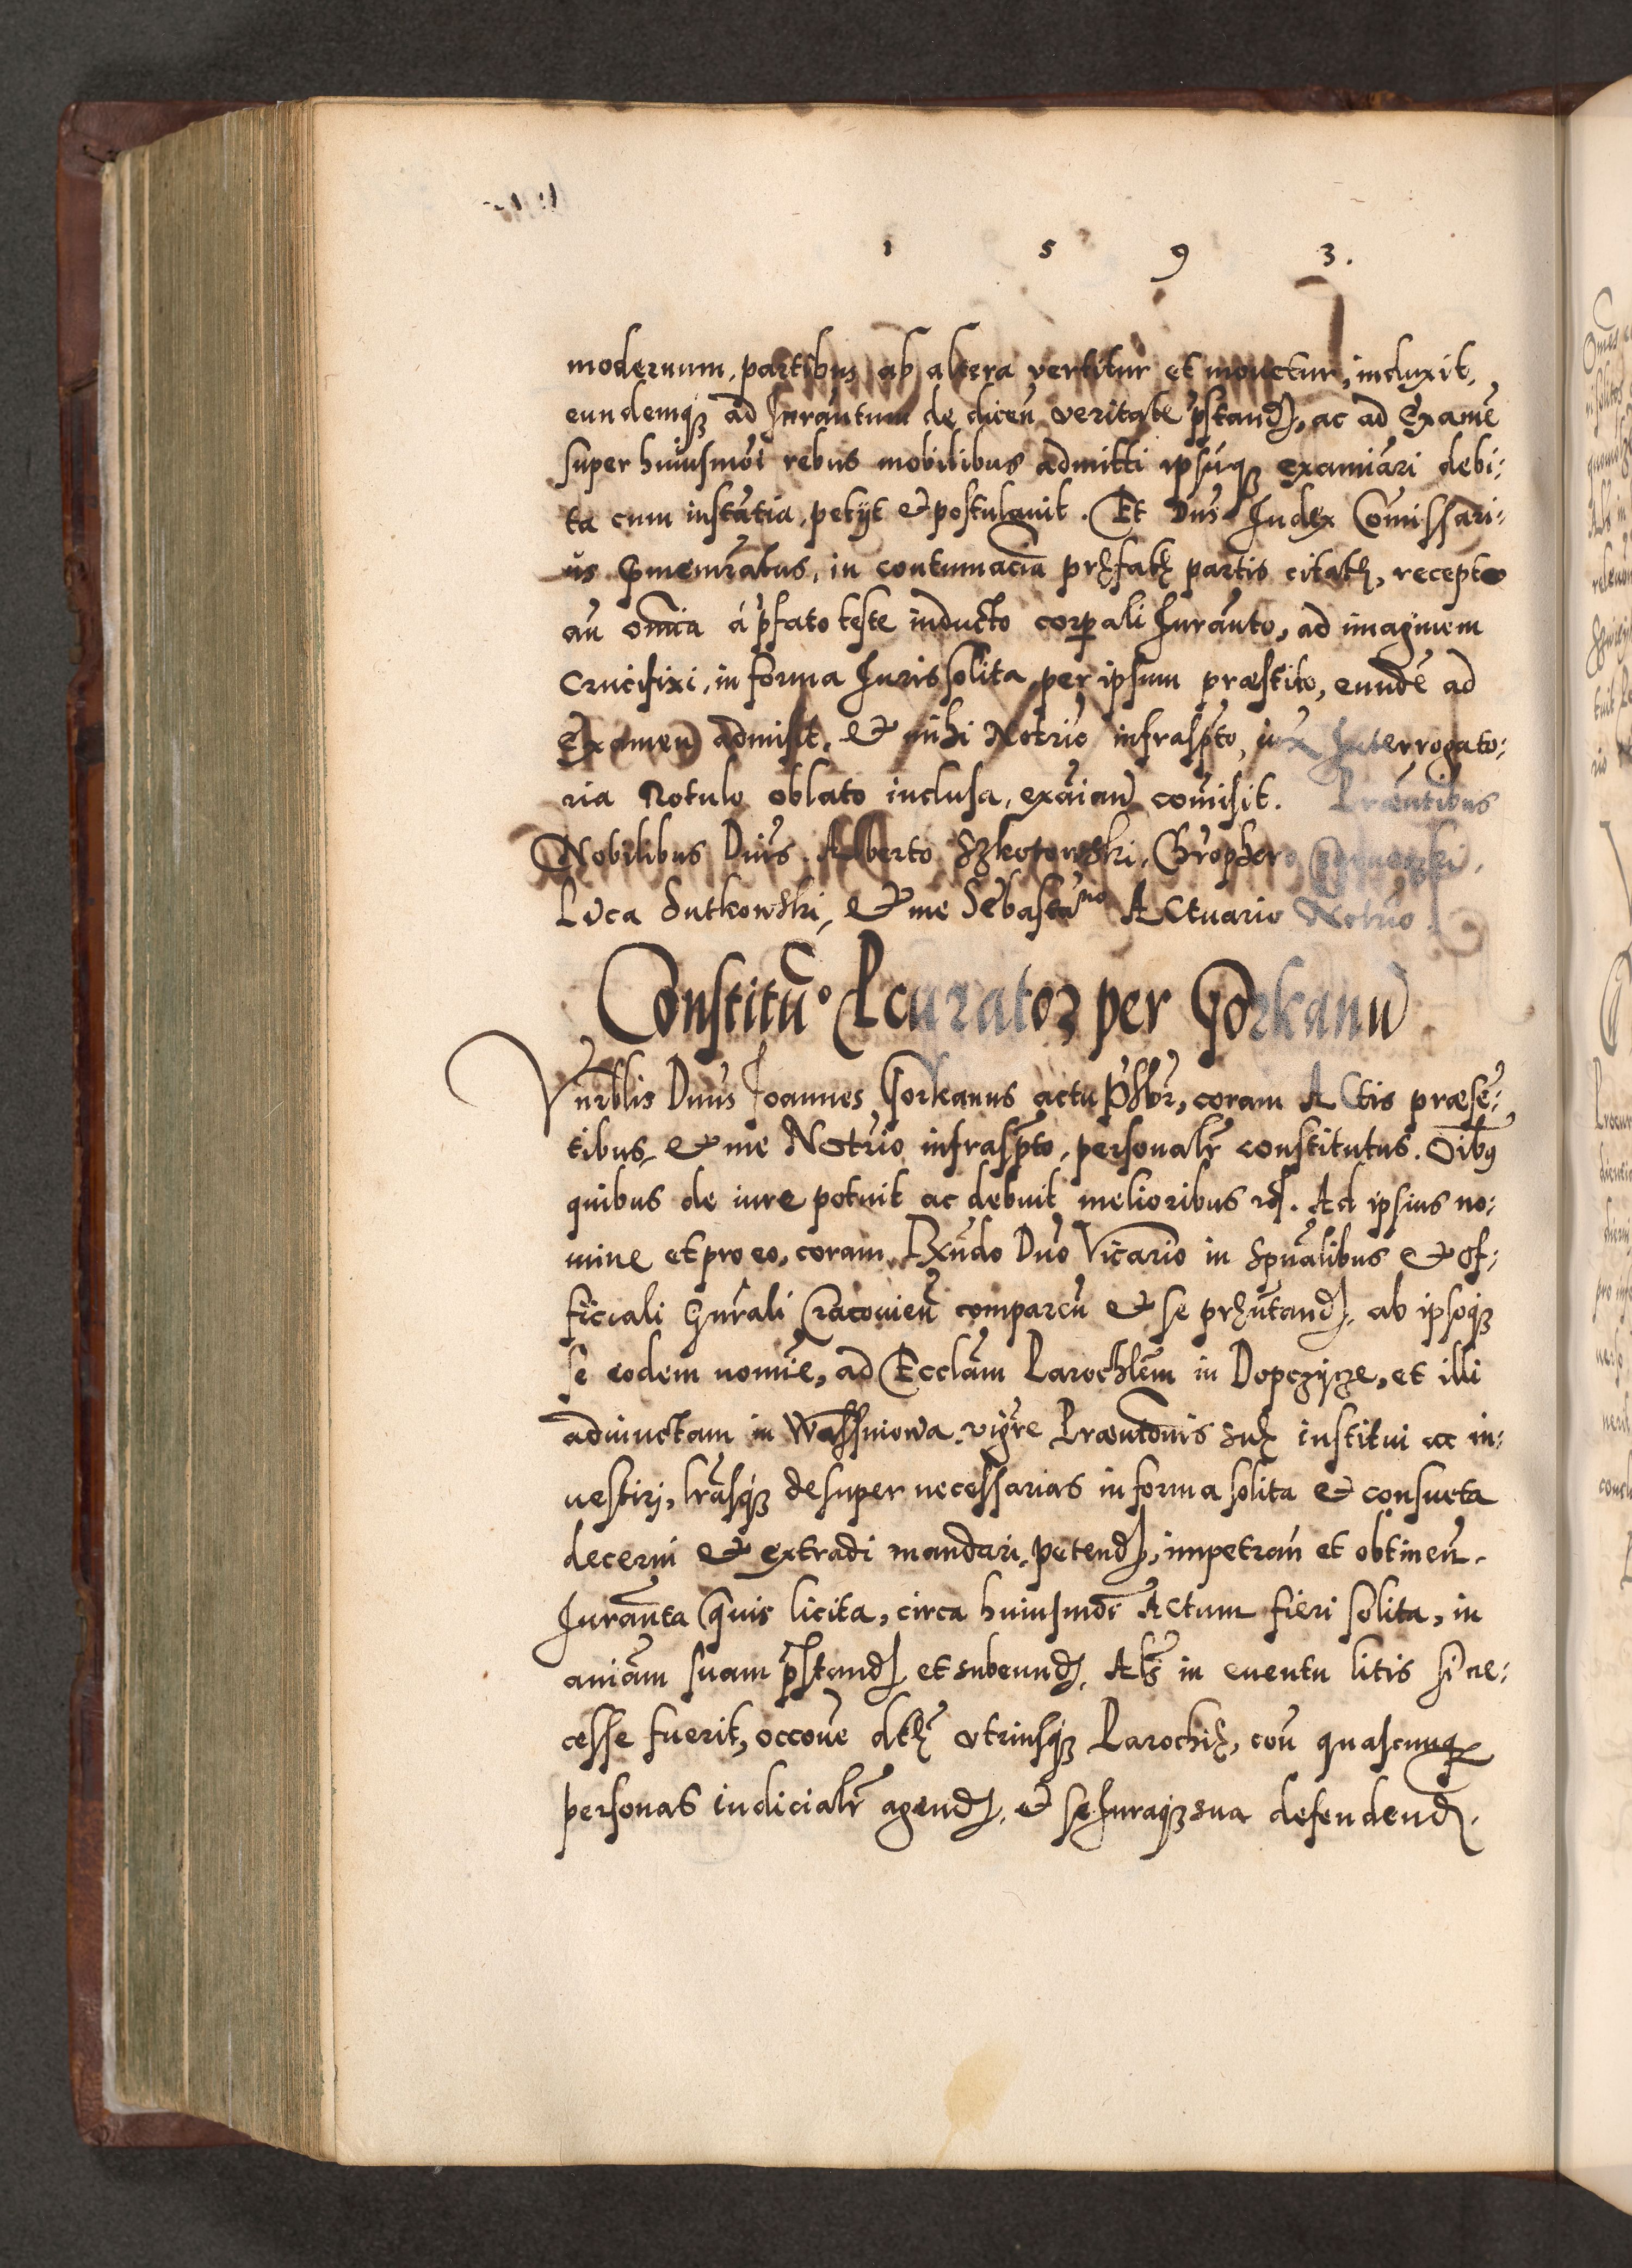 1 5 9 3.
modernum, partibus ab altera vertitur et mouetur, induxit,
eundemqꝫ ad Iurãntum de dicen̄ veritate p̄standꝭ, ac ad Examē
super huiusmōi rebus mobilibus admitti ipsūqꝫ examiāri debi:
ta cum instātia, petijt et postulauit. Et Dn̄s Iudex Com̄issari:
us com̄emōratus, in contumaciā pręfatę partis citatę, recepto
an̄ om̄ia á p̄fato teste inducto corꝑali Iurãnto, ad imaginem
Crucifixi, in forma Iuris solita, per ipsum præstito, eundē ad
Examen admisit, et mihi Notr̄io infrasp̄to, Interrogato:
ria Rotulo oblato inclusa, exāian̄ com̄isit. Præntibus
Nobilibus Dn̄is. Alberto Szkotowski,
Luca Sutkowski, et me Sebastia͂no Actuario Notr̄io.
Constitūo Pcuratoꝝ per Gorkanū
Vn̄rblis Dn̄us Ioannes Gorkanus actu Pr̄sbr, coram Actis præsē:
tibus, et me Notr̄io infrasp̄to, personalr̄ constitutus. Oībꝰ
quibus de iure potuit ac debuit melioribus Ad ipsius no:
mine et pro eo, coram Rn̄do Dn̄o Vicario in Spūalibus et Of:
ficiali Gn̄rali Cracouien̄ comparen̄ et se pręn̄tandꝭ, ab ipsoqꝫ
se eodem nomīe, ad Ecclām Parochlēm in Dopczycze, et illi
adiunctam in Wissniowa, vigr̄e Præntōnis suę institui ac in:
uestiri, lr̄asqꝫ desuper necessarias in forma solita et consueta
decerni et extradi mandari, petendꝭ, impetran̄ et obtinen̄.
Iurãnta quis licita, circa huiusmōi Actum fieri solita, in
aniām suam p̄standꝭ et subeundꝭ. Ats̄ in euentu litis si ne:
cesse fuerit, occōne dtę utriusqꝫ Parochię, con̄ quascunqꝫ
personas iudicialr̄ agendꝭ, et se Iuraqꝫ sua defendendꝭ.